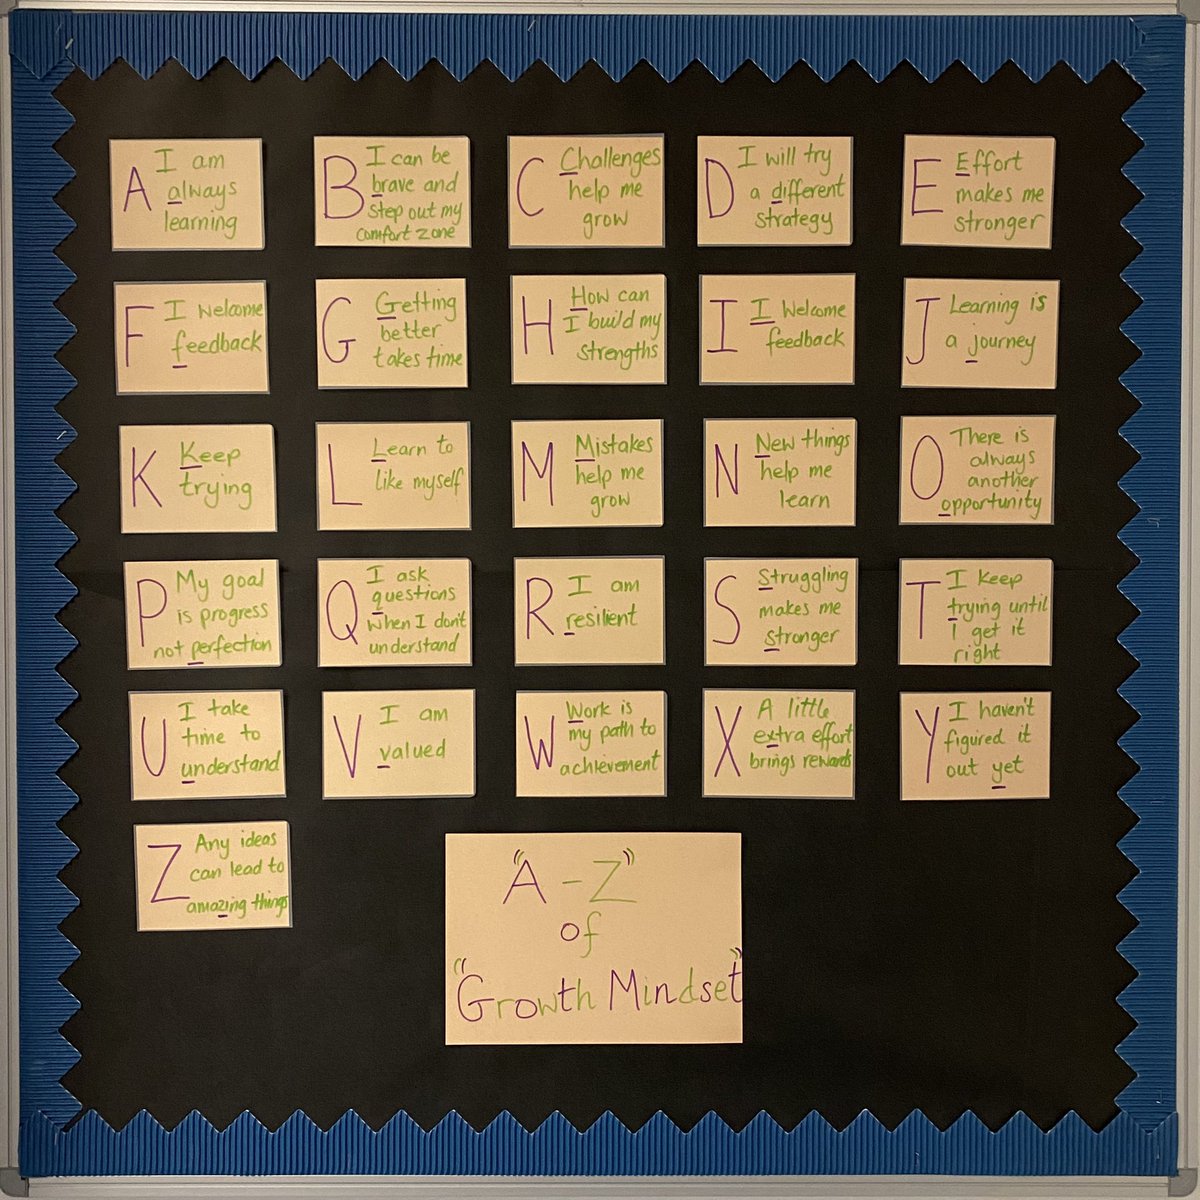 A
I am
always
learning
B
I can be
brave and
step out my
comfort zone
C
Challenges
help me
grow
D
I will try
a different
strategy
E
Effort
makes me
stronger
F
I welcome
feedback
G
Getting
better
takes time
H
How can
I build my
strengths
I
I welcome
feedback
J
Learning is
a journey
K
Keep
trying
L
Learn to
like myself
M
Mistakes
help me
grow
N
New things
help me
learn
O
There is
always
another
opportunity
P
My goal
is progress
not perfection
Q
I ask
questions
when I don't
understand
R
I am
resilient
S
Struggling
makes me
stronger
T
I keep
trying until
I get it
right
U
I take
time to
understand
V
I am
valued
W
Work is
my path to
achievement
X
A little
extra effort
brings rewards
Y
I haven't
figured it
out yet
Z
Any ideas
can lead to
amazing things
"A - Z"
of
"Growth Mindset"